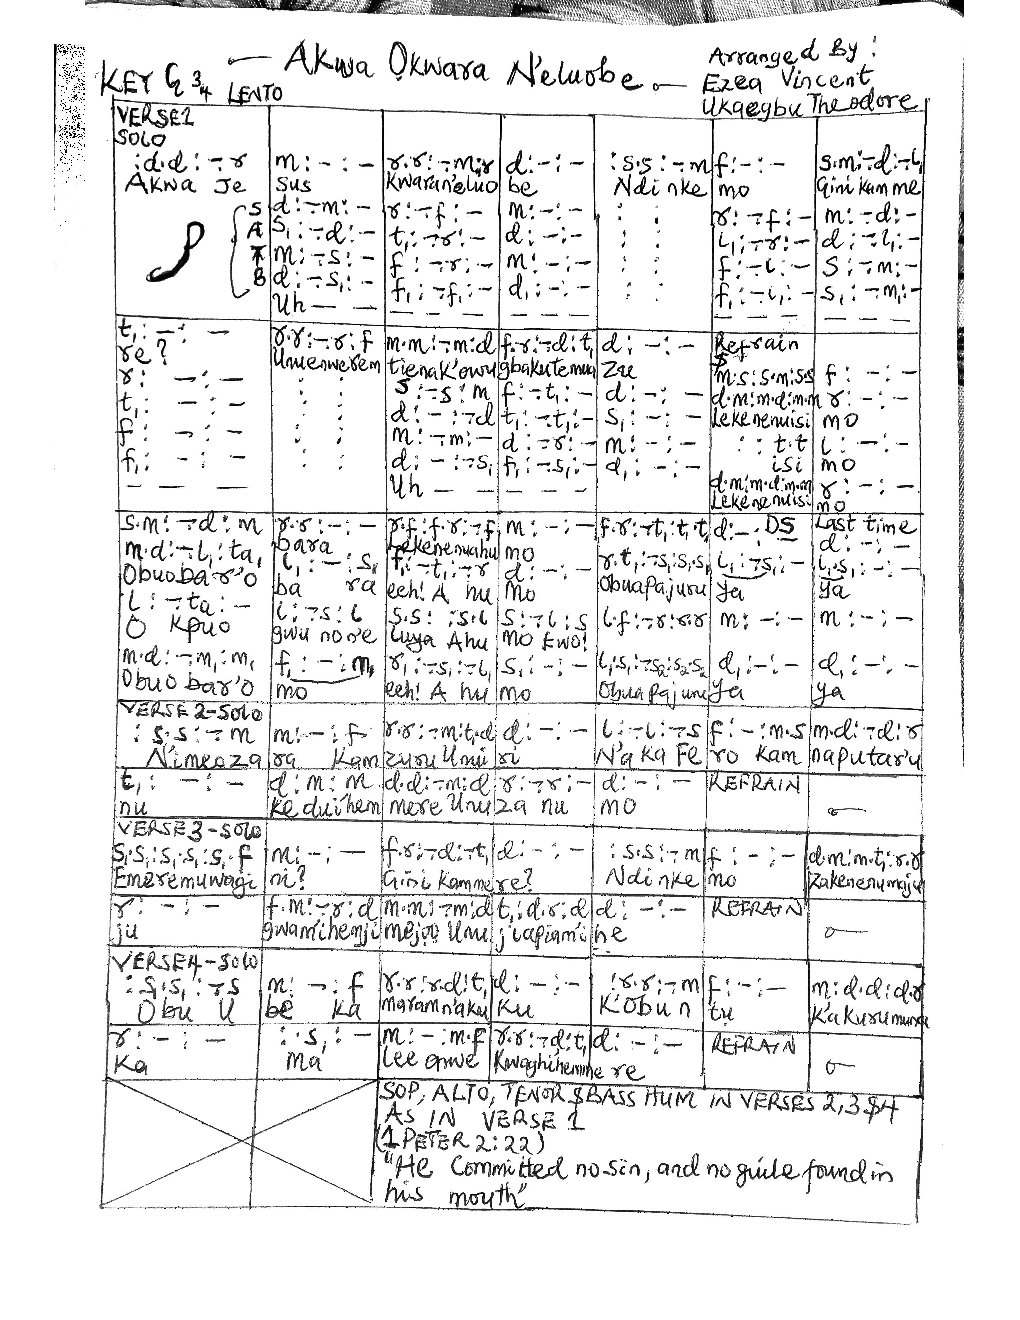 Akwa Ọkwara N'eluobe
Arranged By:
Ezea Vincent
Ukaegbu Theodore
KEY G 3/4 LENTO
VERSE1
SOLO
:d.d :-.r m:-:- r.r:-.m:r d:-:- :s.s:-.m f:-:- s.m:-.d:-.l,
Akwa Je sus Kwaran'eluo be Ndi nke mo Gini kam me
S d:-.m:- r:-.f:- m:-:- : : r:-.f:- m:-.d:-
A s,:-.d:- t,:-.r:- d:-:- : : l,:-.r:- d:-.l,:-
T m:-.s:- f:-.r:- m:-:- : : f:-.l:- s:-.m:-
B d:-.s,:- f,:-.f,:- d,:-:- : : f,:-.l,:- s,:-.m,:-
Uh — —
t,:-:- r.r:-.r:f m.m:-.m:d f.r:-.d:t, d:-:- Refrain
re? Umuenwerem tienak'owu gbakutemua zu
r:-:- : : s:-.s:m f:-.t,:- d:-:- m.s:s.m:s.s f:-:-
t,:-:- : : d:-:-.d t,:-.t,:- s,:-:- d.m:m.d:m.m r:-:-
Lekenenuisi mo
f:-:- : : m:-.m:- d:-.r:- m:-:- : :t.t l:-:-
isi mo
f,:-:- : : d:-:-.s, f,:-.s,:- d,:-:- d.m:m.d:m.m r:-:-
Uh — — Lekenenuisi mo
s.m:-.d:m r.r:-:- r.f:f.r:-.f m:-:- f.r:-.t,:t,.t, d:- DS Last time
bara Lekenenuahu mo d:-:-
m.d:-.l,:ta, l,:-:s, f,:-.t,:-.r d:-:- r.t,:-.s,:s,.s, l,:-.s,:- l,.s,:-:-
Obuobar'o ba ra eeh! A hu mo Obuapajuru ya ya
l:-.ta:- l:-.s:l s.s: :s.l s:-.l:s l.f:-.r:r.r m:-:- m:-:-
O kpuo gwu no n'e luya Ahu mo Ewo!
m.d:-.m,:m, f,:-:m, r,:-.s,:-.l, s,:-:- l,.s,:-.s₂:s₂.s₂ d,:-:- d,:-:-
Obuobar'o mo eeh! A hu mo Obuapajuru ya ya
VERSE 2-SOLO
:s.s:-.m m:-:f r.r:-.m:t,.d d:-:- l:-.l:-.s f:-:m.s m.d:-.d:r
Nimeaza ra Kam zuru Umu ri N'a ka Fe ro kam naputar'u
t,:-:- d:m:m d.d:-.m:d r:-.r:- d:-:- REFRAIN
nu ke duihem mere Unu za nu mo
VERSE 3-SOLO
s,.s,:s,.s,:s,.f m:-:- f.r:-.d:-.t, d:-:- :s.s:-.m f:-:- d.m:m.t,:r.r
Emeremuwagi ni? Gini kammere? Ndi nke mo Zakenenumaju
r:-:- f.m:-.r:d m.m:-.m:d t,:d.r:d d:-:- REFRAIN
ju gwamihemji mejọọ Umu j'iapiam'i he
VERSE4-SOLO
:s,.s,:-.s m:-:f r.r:r.d:t, d:-:- :r.r:-.m f:-:- m:d.d:d.r
Obu U be Ka maramn'aku Ku K'Obu n tu K'akurumuna
r:-:- : :s,:- m:-:m.f r.r:-.d:t, d:-:- REFRAIN
Ka Ma Lee enwe Kwaghihemme re
SOP, ALTO, TENOR $ BASS HUM IN VERSES 2,3 $4
AS IN VERSE 1
(1 PETER 2:22)
"He Committed no sin, and no guile found in
his mouth"